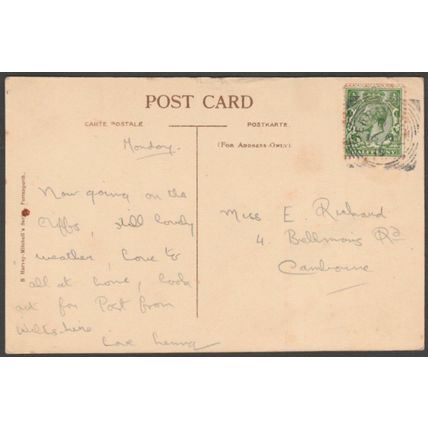 POST CARD
CARTE POSTALE.
POSTKARTE.
(FOR ADDRESS ONLY)
Monday.
Now going on the
Cliffs, still lovely
weather, Love to
all at home, look
out for Post from
Love
Miss E. Richard
4. Rd
Camborne
HALFPENNY
S Harvey-Mitchell's Perranporth.